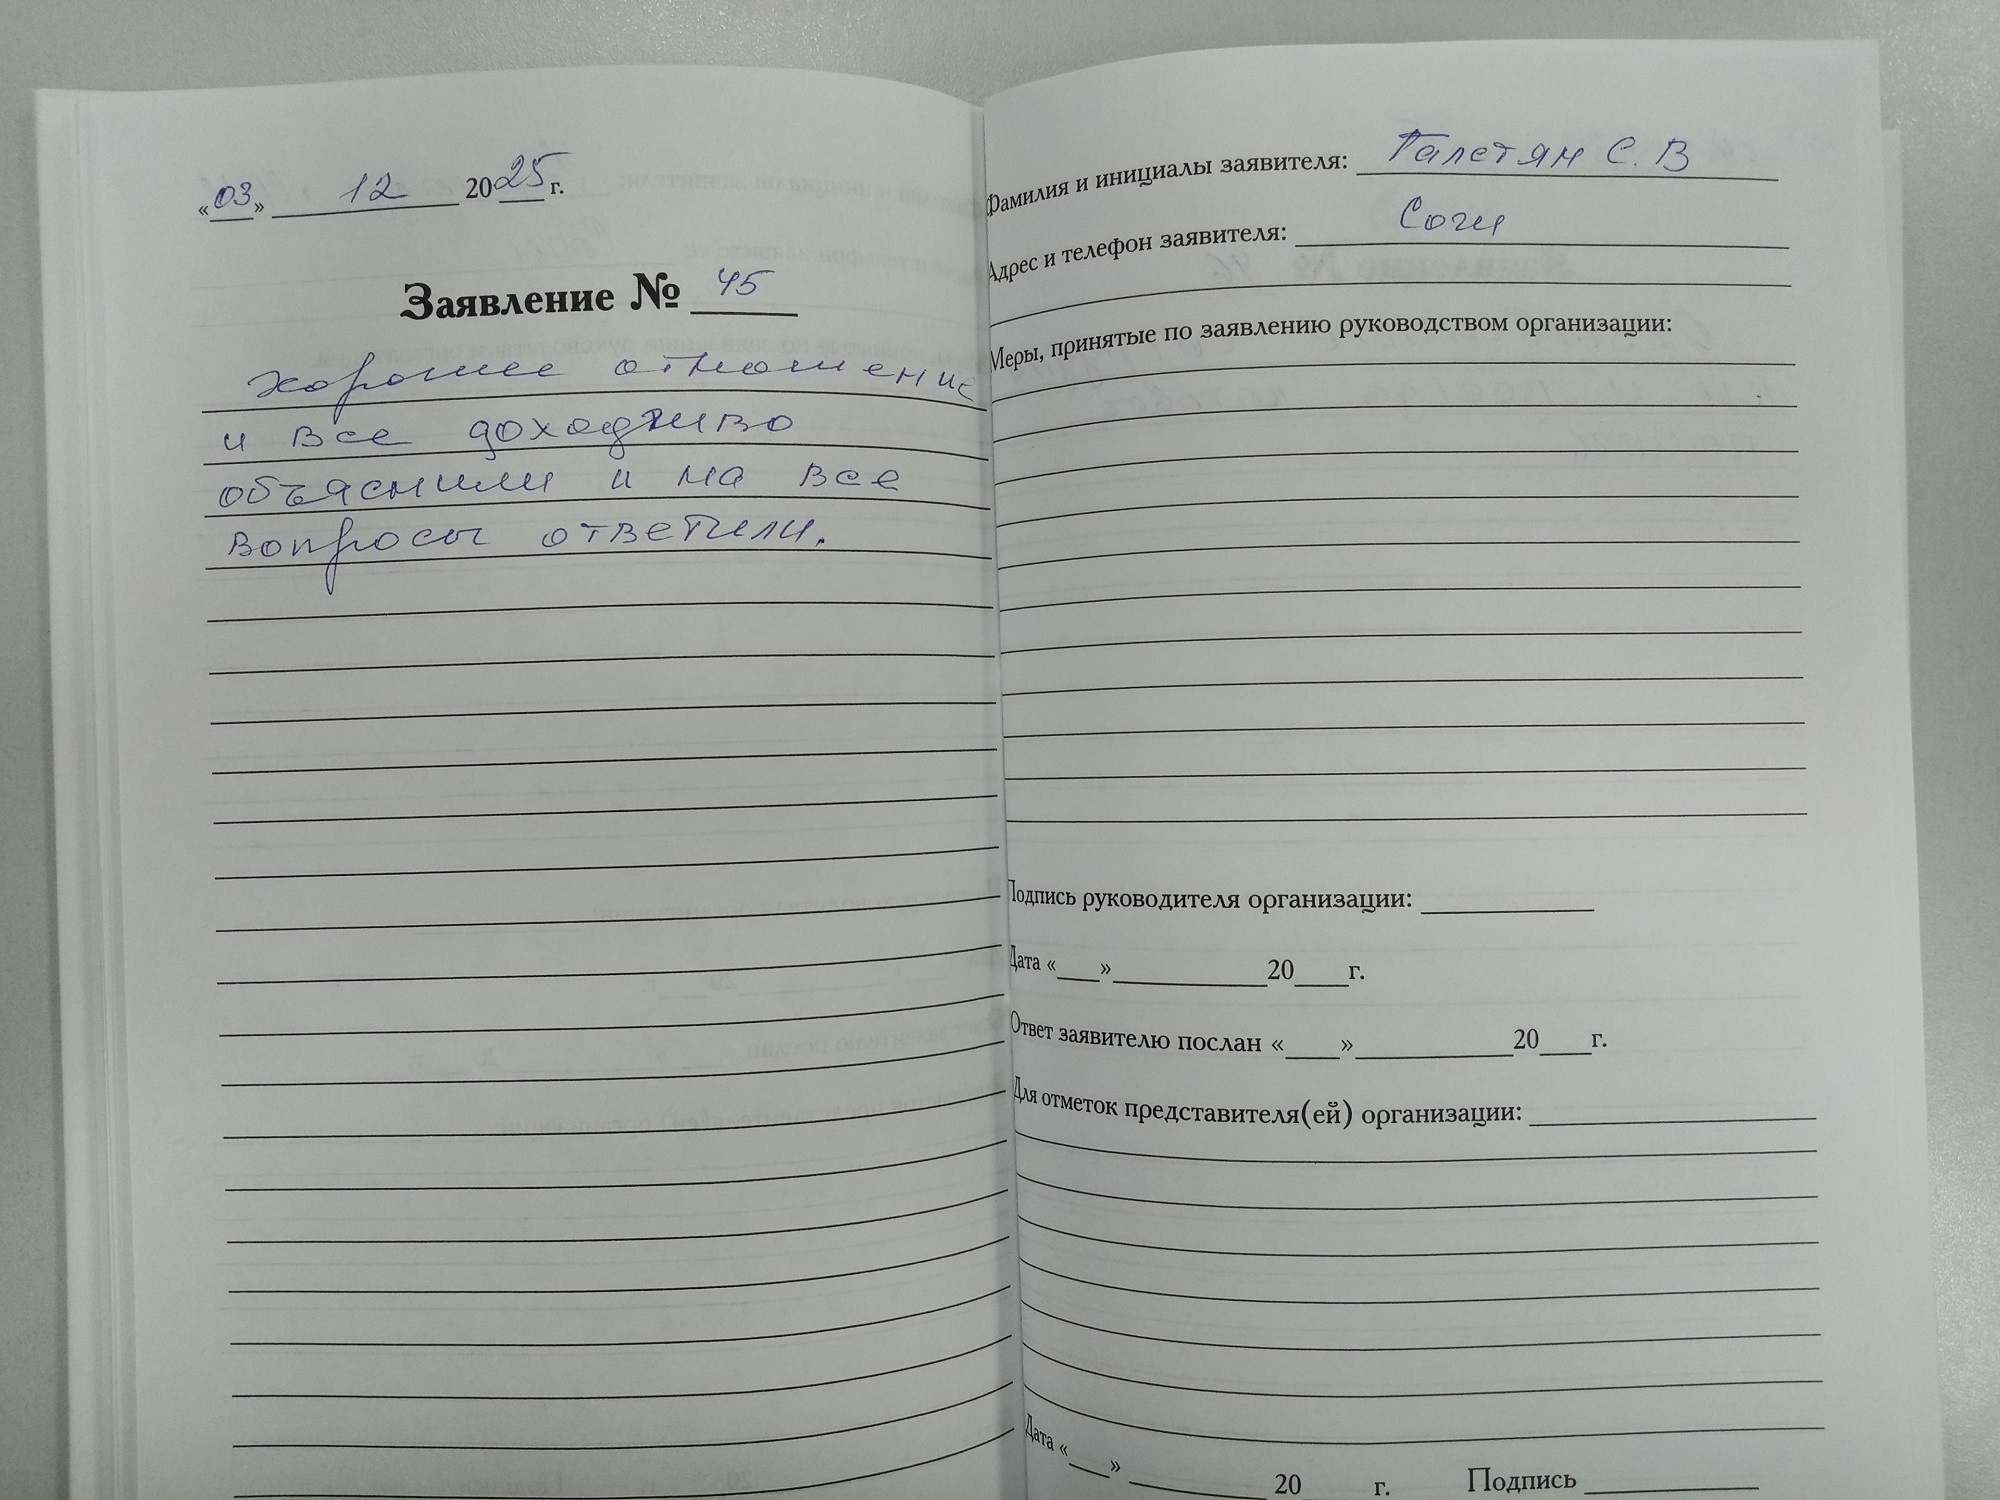 «03» 12 2025 г.
Заявление № 45
Хорошее отношение
и все доходчиво
объяснили и на все
вопросы ответили.
Фамилия и инициалы заявителя: Галстян С. В
Адрес и телефон заявителя: Сочи
Меры, принятые по заявлению руководством организации:
Подпись руководителя организации:
Дата «___»___________20____г.
Ответ заявителю послан «____»___________20____г.
Для отметок представителя(ей) организации:
Дата «___» __________ 20 г. Подпись